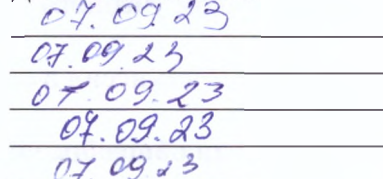 07.09.23
07.09.23
07.09.23
07.09.23
07 09 23